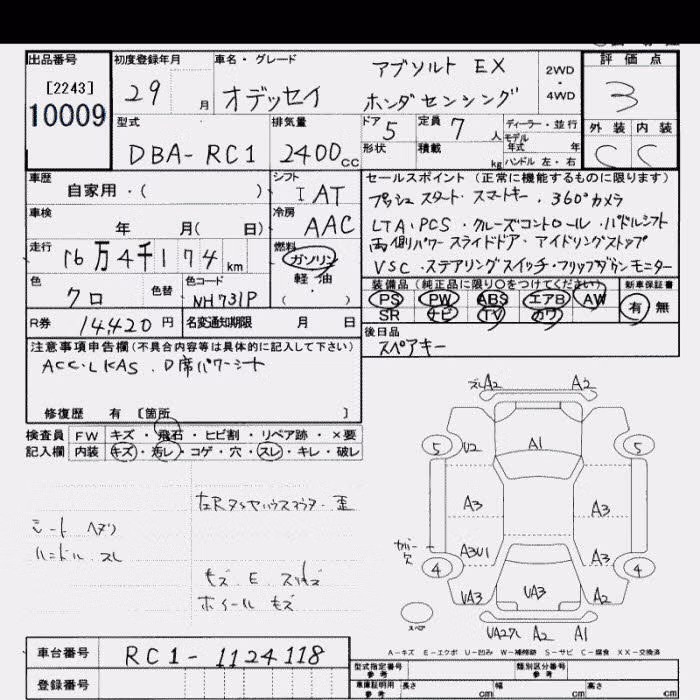 出品番号
[2243]
10009
初度登録年月
29 月
車名・グレード
アブソルト EX
オデッセイ ホンダセンシング
2WD
・
4WD
評価点
3
外装 内装
C C
型式
DBA-RC1
排気量
2400 cc
ドア 5
形状
定員 7 人
積載 kg
ディーラー・並行
モデル
年式 年
ハンドル 左・右
車歴
自家用・( )
シフト
I AT
車検
年 月( 日)
冷房
AAC
走行
16万4千174 km
燃料
ガソリン
軽油
( ・ )
色
クロ
色替
色コード
NH731P
R券 14,420 円
名変通知期限 月 日
セールスポイント (正常に機能するものに限ります)
プッシュスタート・スマートキー・360°カメラ
LTA・PCS・クルーズコントロール・パドルシフト
両側パワースライドドア・アイドリングストップ
VSC・ステアリングスイッチ・フリップダウンモニター
装備品 (純正品に限り○をつけてください)
PS PW ABS エアB AW
SR ナビ TV カワ
新車保証書
有 無
後日品
スペアキー
注意事項申告欄 (不具合内容等は具体的に記入して下さい)
ACC・LKAS・D席パワーシート
修復歴 有 〔箇所 〕
検査員
記入欄
FW キズ・飛石・ヒビ割・リペア跡・×要
内装 キズ・汚レ・コゲ・穴・スレ・キレ・破レ
左Rタイヤハウスアウター 歪
シート ヘタリ
ハンドル スレ
キズ・E・スリキズ
ホイール キズ
A2 A2
5 U2 A1 5
A3 A3
A3U1 A3
4 4
UA3 UA3 A2
スペア
A2 A1
A-キズ E-エクボ U-凹み W-補修跡 S-サビ C-腐食 XX-交換済
車台番号
RC1-1124118
登録番号
型式指定番号
参考
類別区分番号
参考
車庫証明用
参考
長さ cm
幅 cm
高さ cm